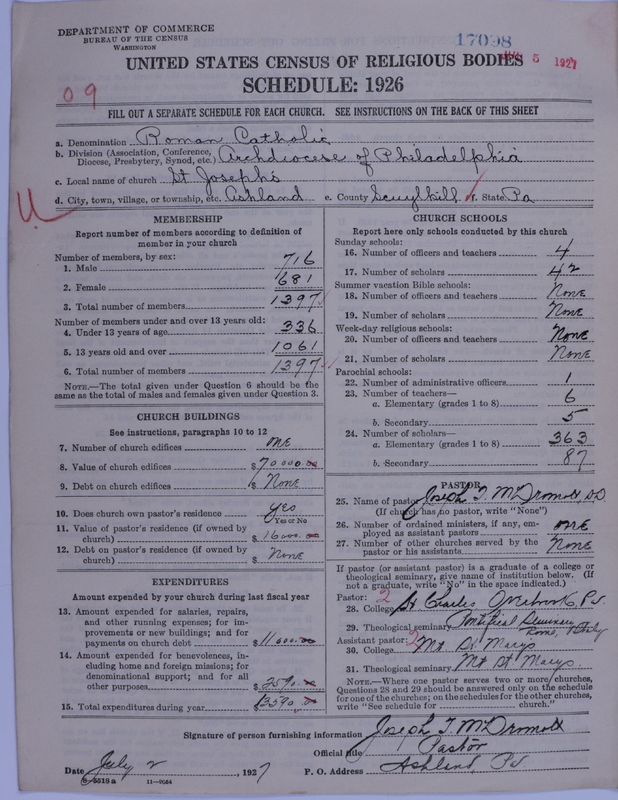 DEPARTMENT OF COMMERCE
BUREAU OF THE CENSUS
WASHINGTON
17098
5 1927
UNITED STATES CENSUS OF RELIGIOUS BODIES
SCHEDULE: 1926
09
FILL OUT A SEPARATE SCHEDULE FOR EACH CHURCH. SEE INSTRUCTIONS ON THE BACK OF THIS SHEET
a. Denomination Roman Catholic
b. Division (Association, Conference, Diocese, Presbytery, Synod, etc.) Archdiocese of Philadelphia
c. Local name of church St Joseph's
d. City, town, village, or township, etc. Ashland e. County Scuylkill f. State Pa
MEMBERSHIP
Report number of members according to definition of
member in your church
Number of members, by sex:
1. Male 716
2. Female 681
3. Total number of members 1397
Number of members under and over 13 years old:
4. Under 13 years of age 336
5. 13 years old and over 1061
6. Total number of members 1397
NOTE.—The total given under Question 6 should be the
same as the total of males and females given under Question 3.
CHURCH BUILDINGS
See instructions, paragraphs 10 to 12
7. Number of church edifices one
8. Value of church edifices $70000.00
9. Debt on church edifices $None
10. Does church own pastor's residence yes
Yes or No
11. Value of pastor's residence (if owned by
church) $16000.00
12. Debt on pastor's residence (if owned by
church) $None
EXPENDITURES
Amount expended by your church during last fiscal year
13. Amount expended for salaries, repairs,
and other running expenses; for im-
provements or new buildings; and for
payments on church debt $11000.00
14. Amount expended for benevolences, in-
cluding home and foreign missions; for
denominational support; and for all
other purposes $2590.00
15. Total expenditures during year $13590.00
CHURCH SCHOOLS
Report here only schools conducted by this church
Sunday schools:
16. Number of officers and teachers 4
17. Number of scholars 42
Summer vacation Bible schools:
18. Number of officers and teachers None
19. Number of scholars None
Week-day religious schools:
20. Number of officers and teachers None
21. Number of scholars None
Parochial schools:
22. Number of administrative officers 1
23. Number of teachers—
a. Elementary (grades 1 to 8) 6
b. Secondary 5
24. Number of scholars—
a. Elementary (grades 1 to 8) 363
b. Secondary 87
PASTOR
25. Name of pastor Joseph T. McDromott
(If church has no pastor, write "None")
26. Number of ordained ministers, if any, em-
ployed as assistant pastors one
27. Number of other churches served by the
pastor or his assistants None
If pastor (or assistant pastor) is a graduate of a college or
theological seminary, give name of institution below. (If
not a graduate, write "No" in the space indicated.)
Pastor: 2
28. College St Charles Overbrook Pa.
29. Theological seminary Pontifical Seminary Rome, Italy
Assistant pastor: 2
30. College Mt St Marys
31. Theological seminary Mt St Marys
NOTE.—Where one pastor serves two or more churches,
Questions 28 and 29 should be answered only on the schedule
for one of the churches; on the schedules for the other churches,
write "See schedule for church."
Signature of person furnishing information Joseph T. McDromott
Official title Pastor
Date July 2, 1927 P. O. Address Ashland, Pa
8—5518a 11—9584